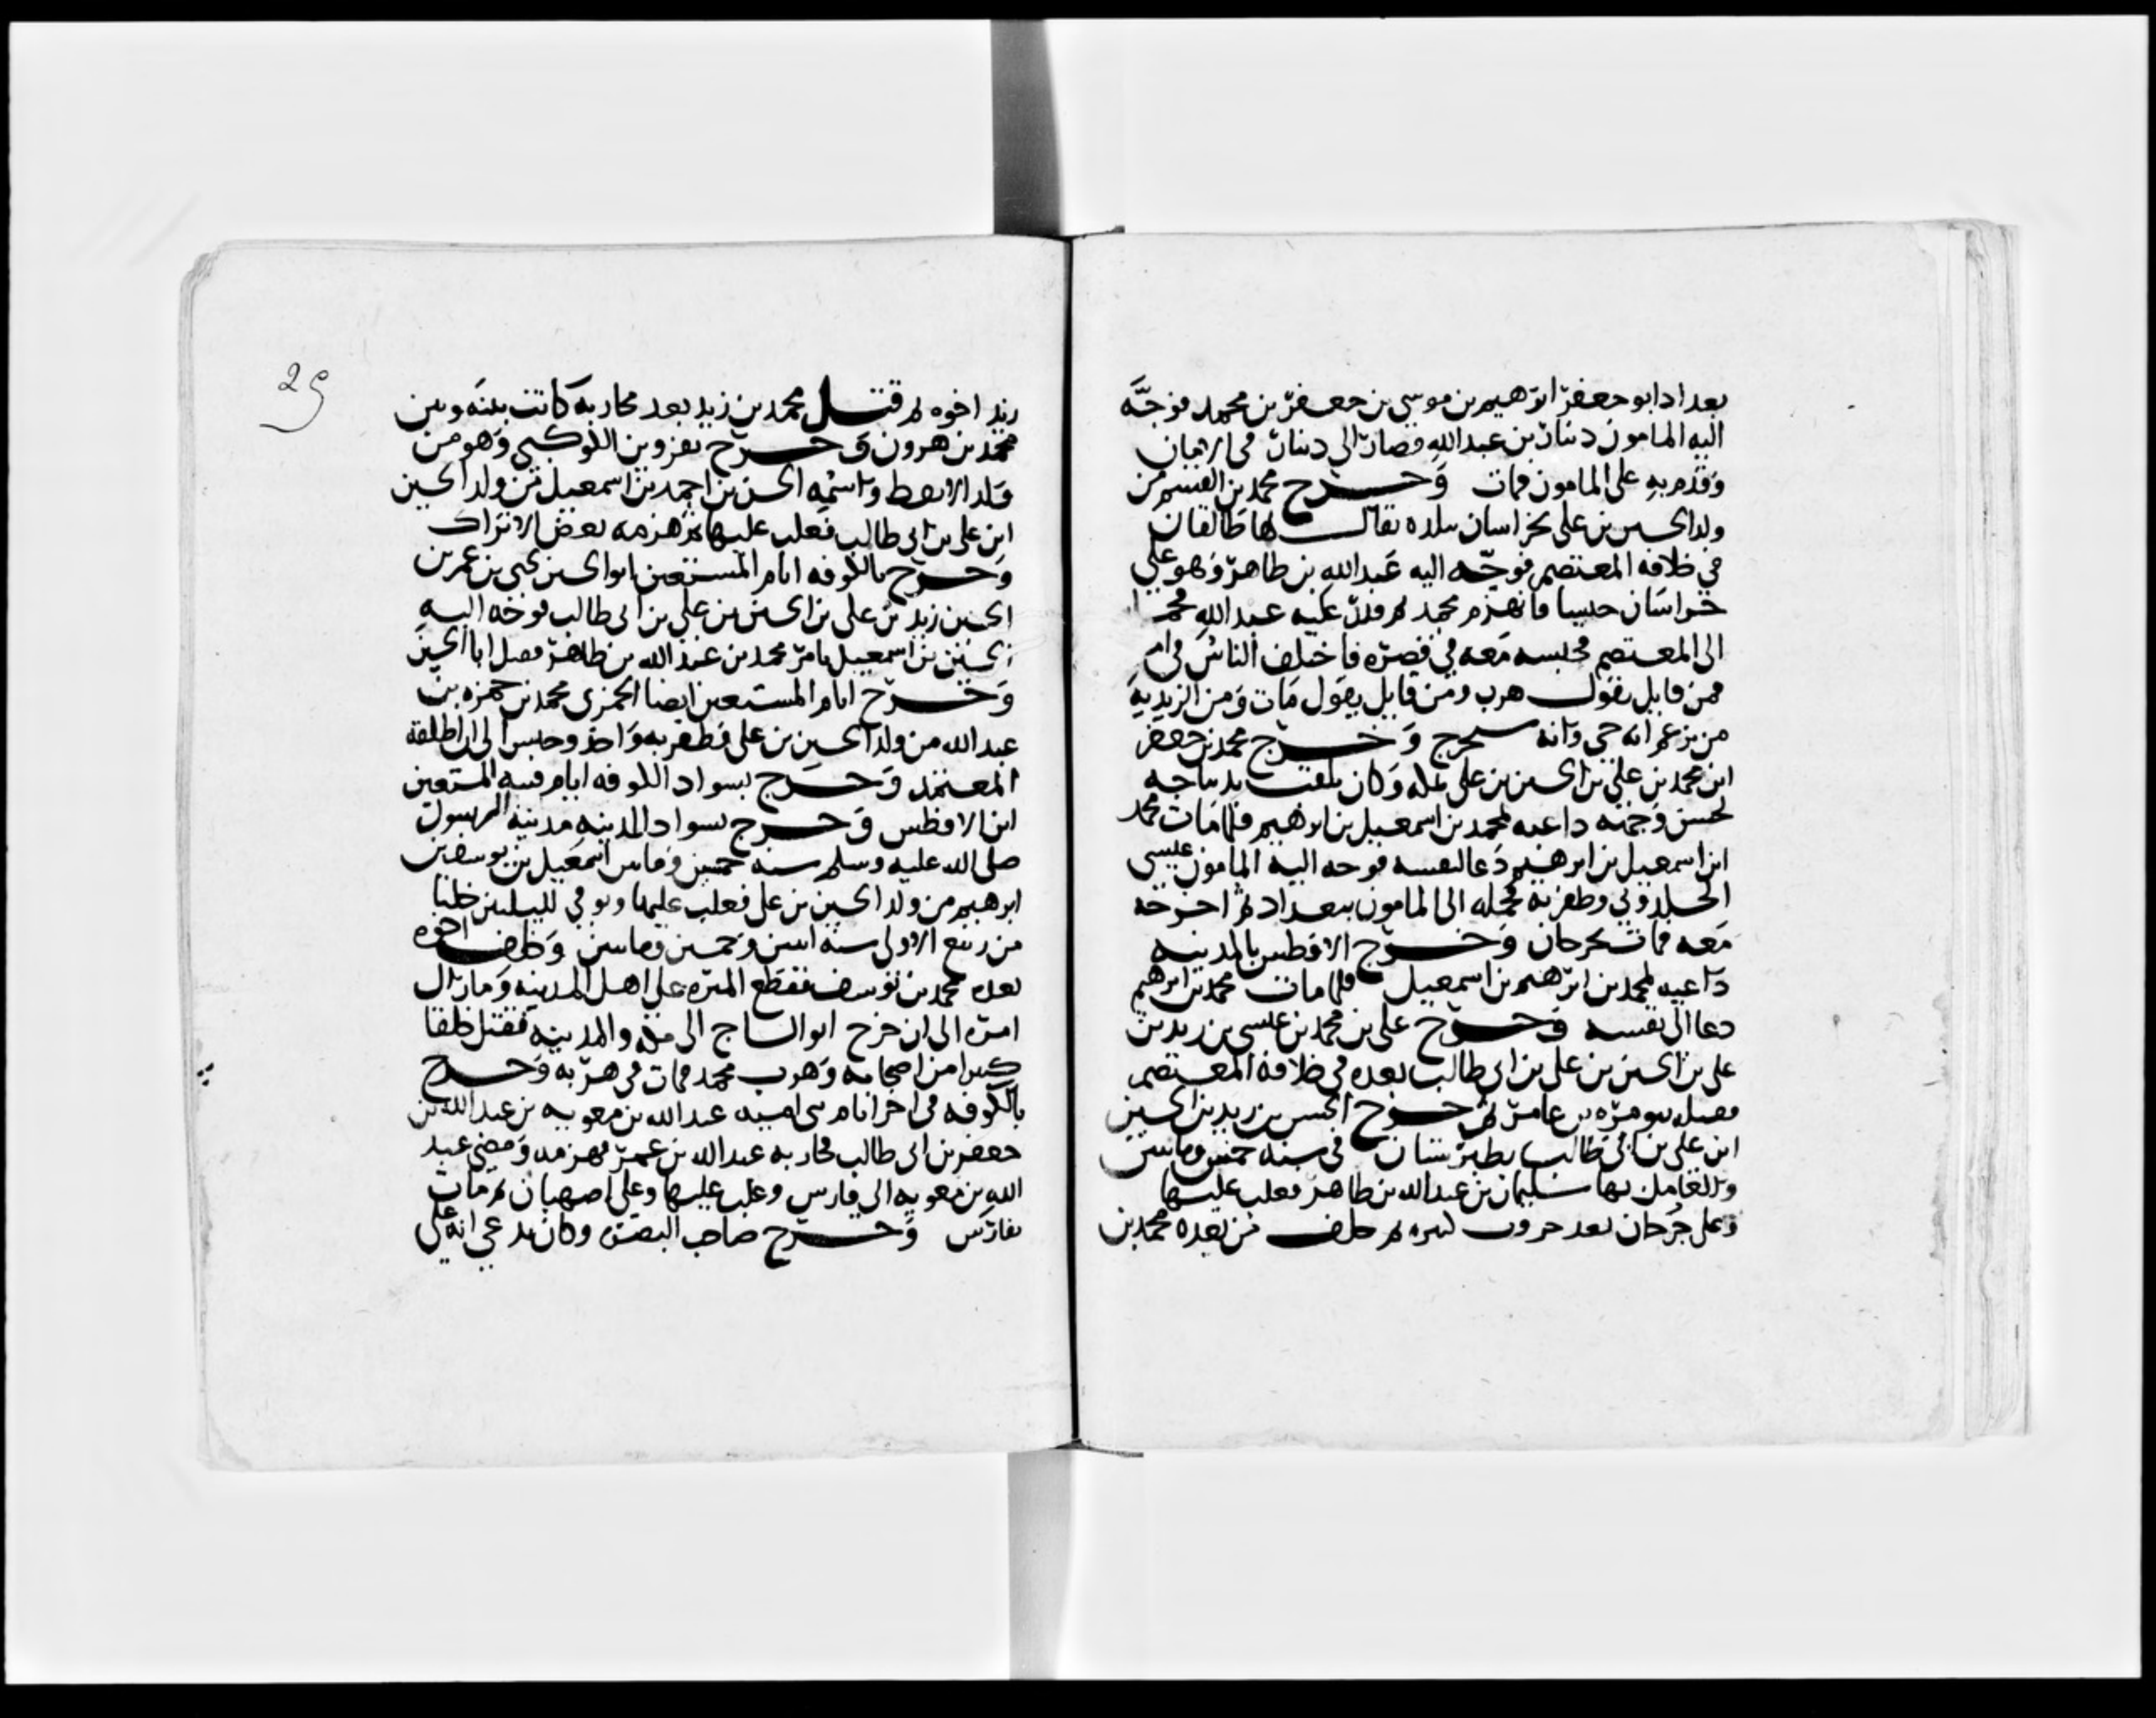 بغداد ابو جعفر ابرهيم بن موسى بن جعفر بن محمد فوجّه
اليه المامون دينار بن عبد الله فصار الى دينار في الامان
وقدم به على المامون فمات وخرج محمد بن القسم من
ولد الحسين بن على بخراسان ببلده يقال لها طالقان
في خلافه المعتصم فوجّه اليه عبد الله بن طاهر وهو على
خراسان جيشا فانهزم محمد ثم قدر عليه عبد الله فحمله
الى المعتصم فحبسه معه في قصره فاختلف الناس في امره
فمن قايل يقول هرب ومن قايل يقول مات ومن الزيديه
من يزعم انه حي وانه سيخرج وخرج محمد بن جعفر
ابن محمد بن على بن الحسين بن على بمكه وكان يلقب بديباجه
لحسن وجهه داعيه لمحمد بن اسمعيل بن ابرهيم فلما مات محمد
ابن اسمعيل بن ابرهيم دعا لنفسه فوجه اليه المامون عيسى
الجلودي وظفر به فحمله الى المامون ببغداد ثم اخرجه
معه فمات بجرجان وخرج الافطس بالمدينه
داعيه لمحمد بن ابرهيم بن اسمعيل فلما مات محمد بن ابرهيم
دعا الى نفسه وخرج على بن محمد بن عيسى بن زيد بن
على بن الحسين بن على بن ابى طالب بعده في خلافه المعتصم
فقتله بنو مره بن عامر ثم خرج الحسن بن زيد بن الحسين
ابن على بن ابى طالب بطبرستان في سنه خمسين ومايتين
والعامل بها سليمان بن عبد الله بن طاهر فغلب عليها
وعلى جرجان بعد حروب كثيره ثم خلف من بعده محمد بن
29
زيد اخوه ثم قتل محمد بن زيد بعد محاربه كانت بينه وبين
محمد بن هرون وخرج بقزوين الكوكبي وهو من
ولد الارقط واسمه الحسن بن احمد بن اسمعيل من ولد الحسين
ابن على بن ابى طالب فغلب عليها ثم هزمه بعض الاتراك
وخرج بالكوفه ايام المستعين ابو الحسين يحيى بن عمر بن
الحسين بن زيد بن على بن الحسين بن على بن ابى طالب فوجه اليه
الحسين بن اسمعيل بامر محمد بن عبد الله بن طاهر فقتل ابا الحسين
وخرج ايام المستعين ايضا الحمزى محمد بن حمزه بن
عبد الله من ولد الحسين بن على فظفر به واخذ وحبس الى ان اطلقه
المعتمد وخرج بسواد الكوفه ايام فتنه المستعين
ابن الافطس وخرج بسواد المدينه مدينه الرسول
صلى الله عليه وسلم سنه خمسين ومايتين اسمعيل بن يوسف بن
ابرهيم من ولد الحسين بن على فغلب عليها وتوفي لليلتين خلتا
من ربيع الاول سنه اثنين وخمسين ومايتين وخلف اخوه
بعده محمد بن يوسف فقطع الميره على اهل المدينه وما زال
امره الى ان خرج ابو الساج الى مكه والمدينه فقتل خلقا
كثيرا من اصحابه وهرب محمد فمات في هربه وخرج
بالكوفه في اخر ايام بنى اميه عبد الله بن معويه بن عبد الله بن
جعفر بن ابى طالب فحاربه عبد الله بن عمر فهزمه ومضى عبد
الله بن معويه الى فارس وغلب عليها وعلى اصبهان ثم مات
بفارس وخرج صاحب البصره وكان يدعى انه على